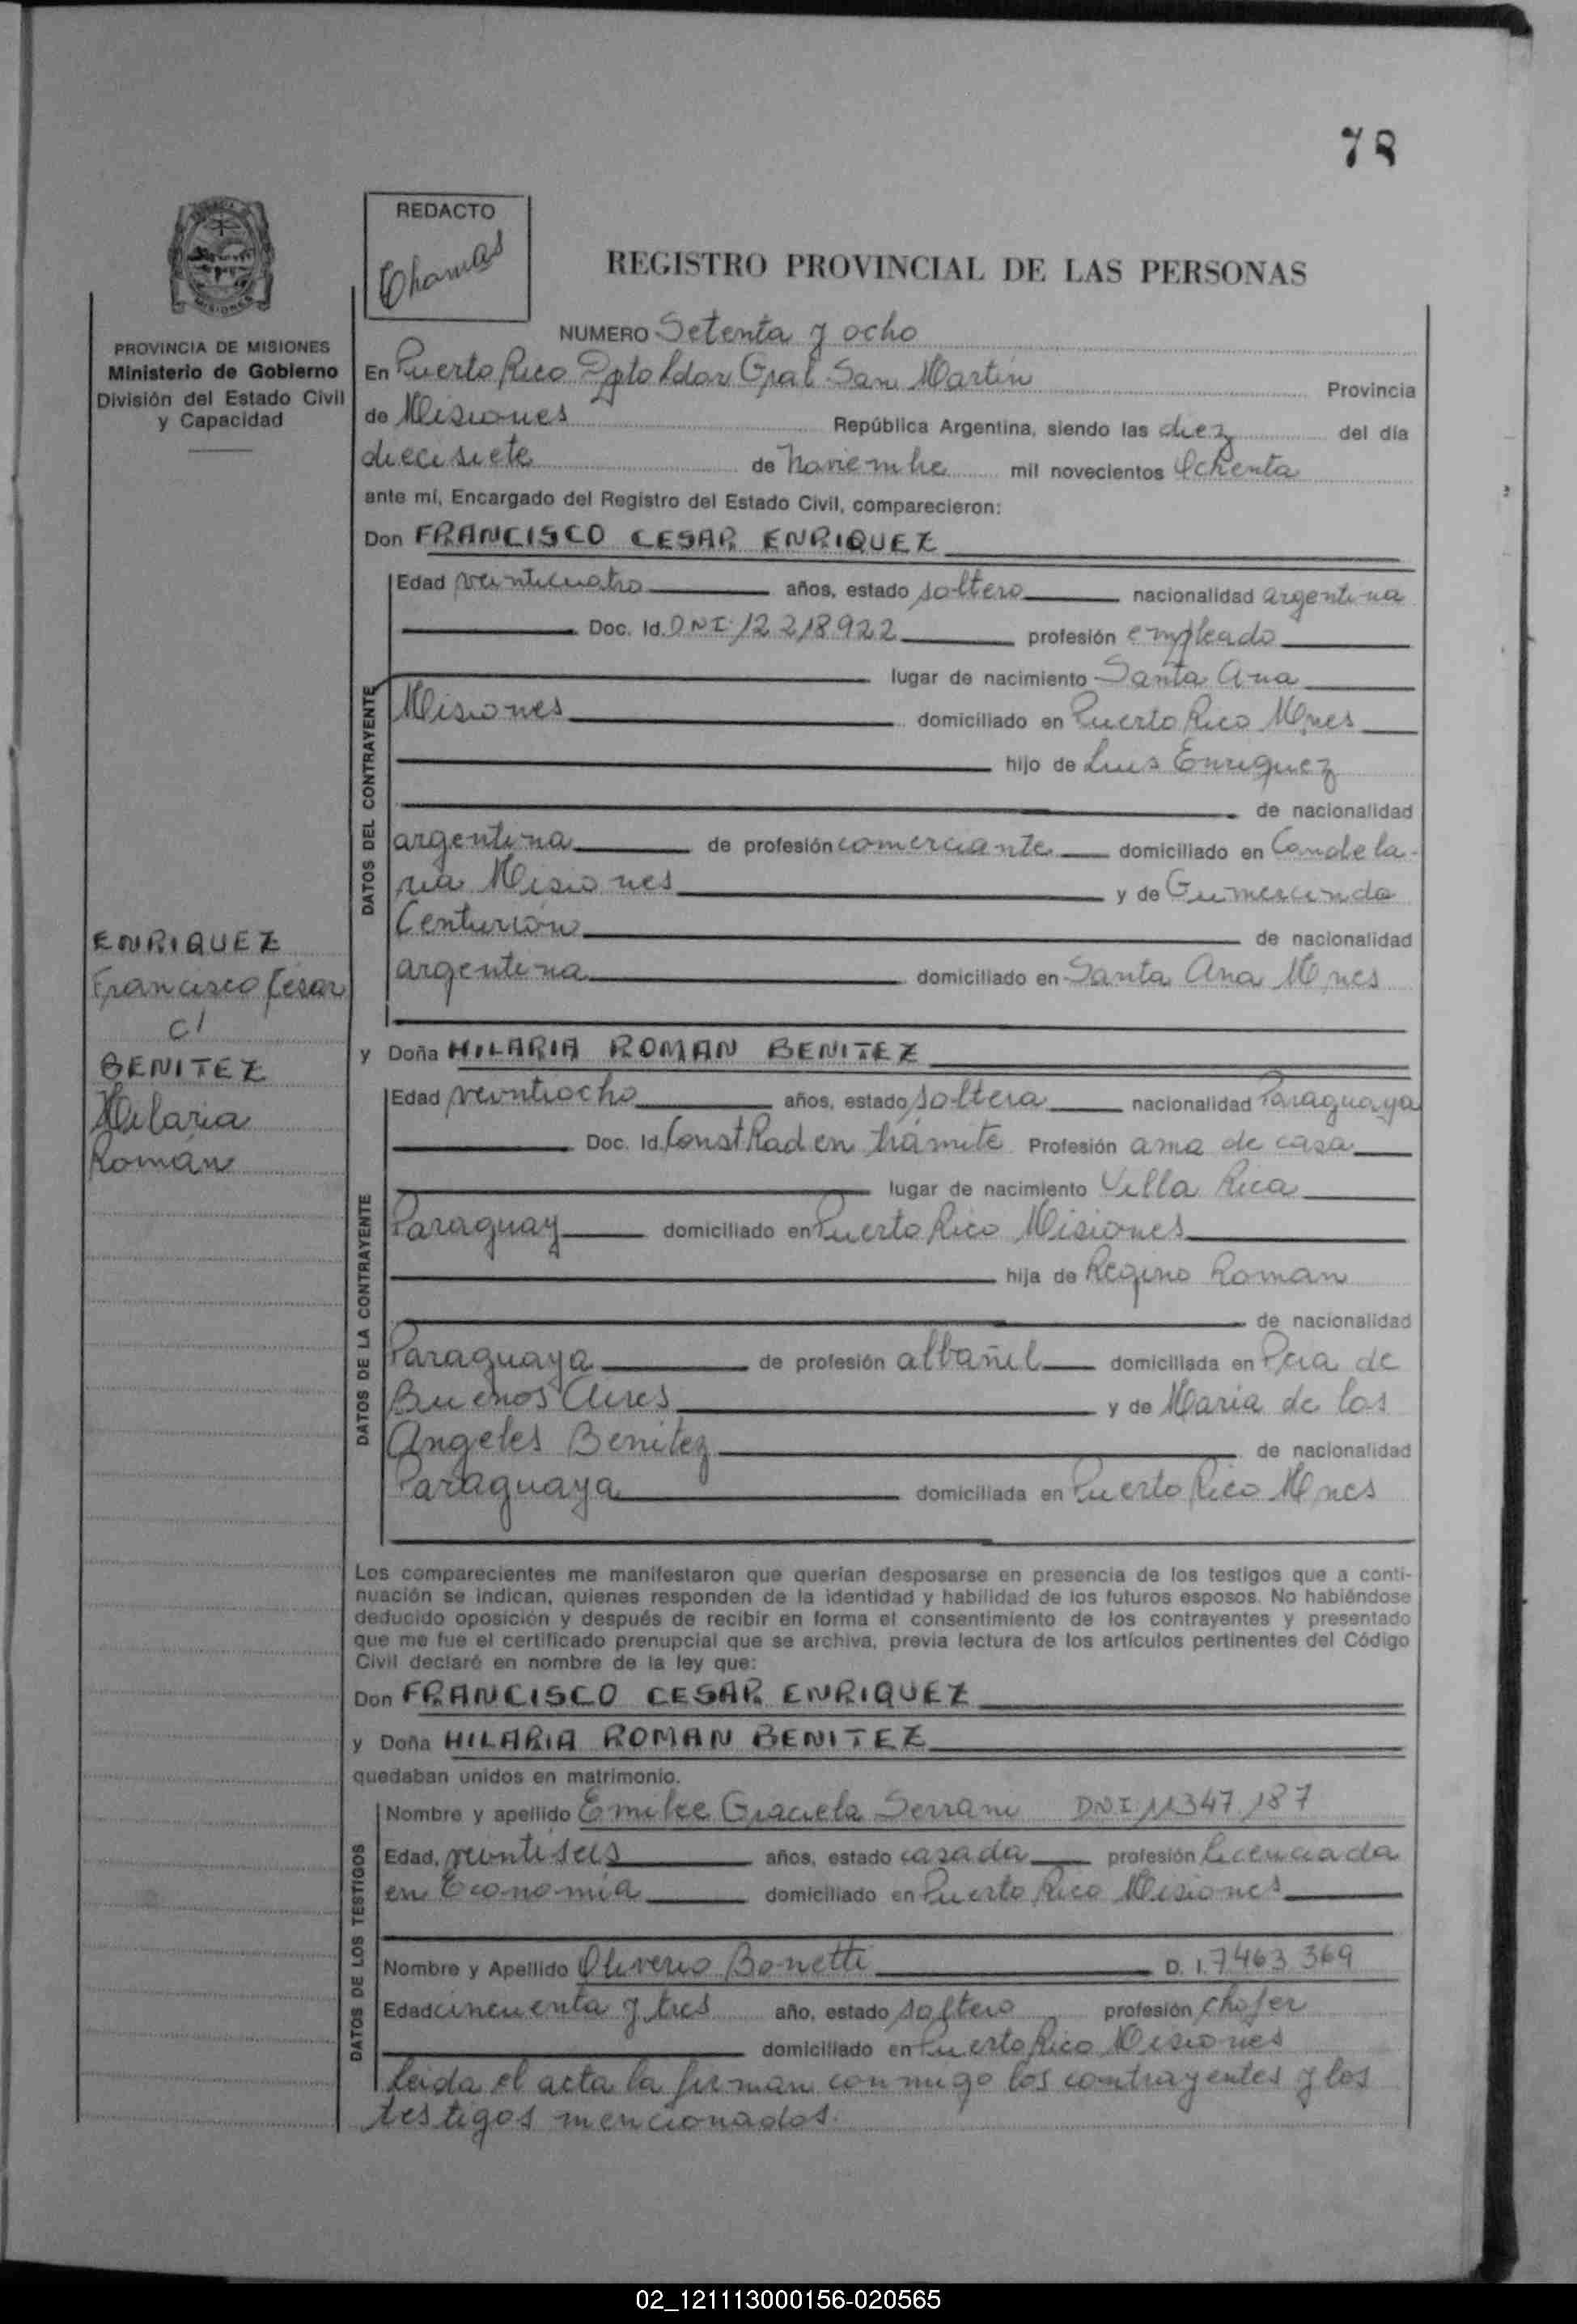 78
REDACTO
Chamas
REGISTRO PROVINCIAL DE LAS PERSONAS
MISIONES
PROVINCIA DE MISIONES
Ministerio de Gobierno
División del Estado Civil
y Capacidad
NUMERO Setenta y ocho
En Puerto Rico Dpto Ldor Gral San Martín Provincia
de Misiones República Argentina, siendo las diez del día
diecisiete de noviembre mil novecientos Ochenta
ante mí, Encargado del Registro del Estado Civil, comparecieron:
Don FRANCISCO CESAR ENRIQUEZ
DATOS DEL CONTRAYENTE
Edad veinticuatro años, estado soltero nacionalidad argentina
Doc. Id. DNI 12 218 922 profesión empleado
lugar de nacimiento Santa Ana
Misiones domiciliado en Puerto Rico Mnes
hijo de Luis Enriquez
de nacionalidad
argentina de profesión comerciante domiciliado en Candela-
ria Misiones y de Gumercinda
Centurión de nacionalidad
argentina domiciliado en Santa Ana Mnes
ENRIQUEZ
Francisco César
c/
BENITEZ
Hilaria
Román
y Doña HILARIA ROMAN BENITEZ
DATOS DE LA CONTRAYENTE
Edad veintiocho años, estado soltera nacionalidad Paraguaya
Doc. Id. Const Rad en trámite Profesión ama de casa
lugar de nacimiento Villa Rica
Paraguay domiciliado en Puerto Rico Misiones
hija de Regino Roman
de nacionalidad
Paraguaya de profesión albañil domiciliada en Pcia de
Buenos Aires y de Maria de los
Angeles Benitez de nacionalidad
Paraguaya domiciliada en Puerto Rico Mnes
Los comparecientes me manifestaron que querían desposarse en presencia de los testigos que a conti-
nuación se indican, quienes responden de la identidad y habilidad de los futuros esposos. No habiéndose
deducido oposición y después de recibir en forma el consentimiento de los contrayentes y presentado
que me fue el certificado prenupcial que se archiva, previa lectura de los artículos pertinentes del Código
Civil declaré en nombre de la ley que:
Don FRANCISCO CESAR ENRIQUEZ
y Doña HILARIA ROMAN BENITEZ
quedaban unidos en matrimonio.
DATOS DE LOS TESTIGOS
Nombre y apellido Emilce Graciela Serrani DNI 11347 187
Edad, veintiseis años, estado casada profesión licenciada
en Economía domiciliado en Puerto Rico Misiones
Nombre y Apellido Oliverio Bonetti D. I. 7463 369
Edad cincuenta y tres año, estado soltero profesión chofer
domiciliado en Puerto Rico Misiones
Leida el acta la firman conmigo los contrayentes y los
testigos mencionados.
02_121113000156-020565